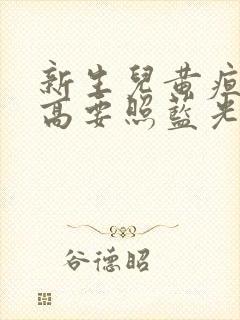 新生兒黃疸
高要照藍光
谷德昭